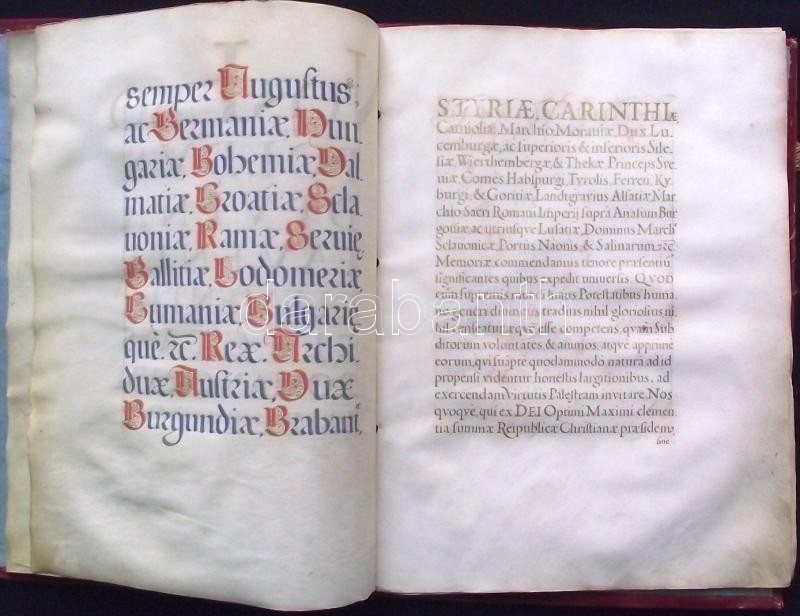 semper Augustus,
ac Germaniæ, Hun
gariæ, Bohemiæ, Dal
matiæ, Croatiæ, Scla
voniæ, Ramæ, Servię,
Gallitiæ, Lodomeriæ,
Cumaniæ, Bulgarię
què. &c. Rex. Archi
dux, Austriæ, Dux
Burgundiæ, Brabant,
STYRIÆ, CARINTHIæ,
Carnioliæ, Marchio Moraviæ, Dux Lu
cemburgæ, ac superioris & inferioris Sile
siæ, Wierthembergæ, & Thekæ Princeps Sve
viæ, Comes Habspurgi, Tyrolis, Ferreti, Ky
burgi, & Goritiæ, Landtgravius Alsatiæ, Mar
chio Sacri Romani Imperij supra Anasum Bur
goviæ ac utriusque Lusatiæ, Dominus March
Sclavonicæ, Portus Naonis, & Salinarum. &c.
Memoriæ commendamus tenore præsentiu
significantes quibus expedit universis. QVOD
cum supremis mortalibus Potestatibus huma
no generi divinitus traditis nihil gloriosius, ni
hil excellentisque esse competens, quam Sub
ditorum voluntates & animos, atque apprime
eorum, qui suapte quodammodo natura ad id
propensi videntur honestis largitionibus, ad
exercendam Virtutis Palestram invitare. Nos
quoque, qui ex DEI Optimi Maximi clemen
tia summæ Reipublicæ Christianæ præsidemy
sine
darabanth